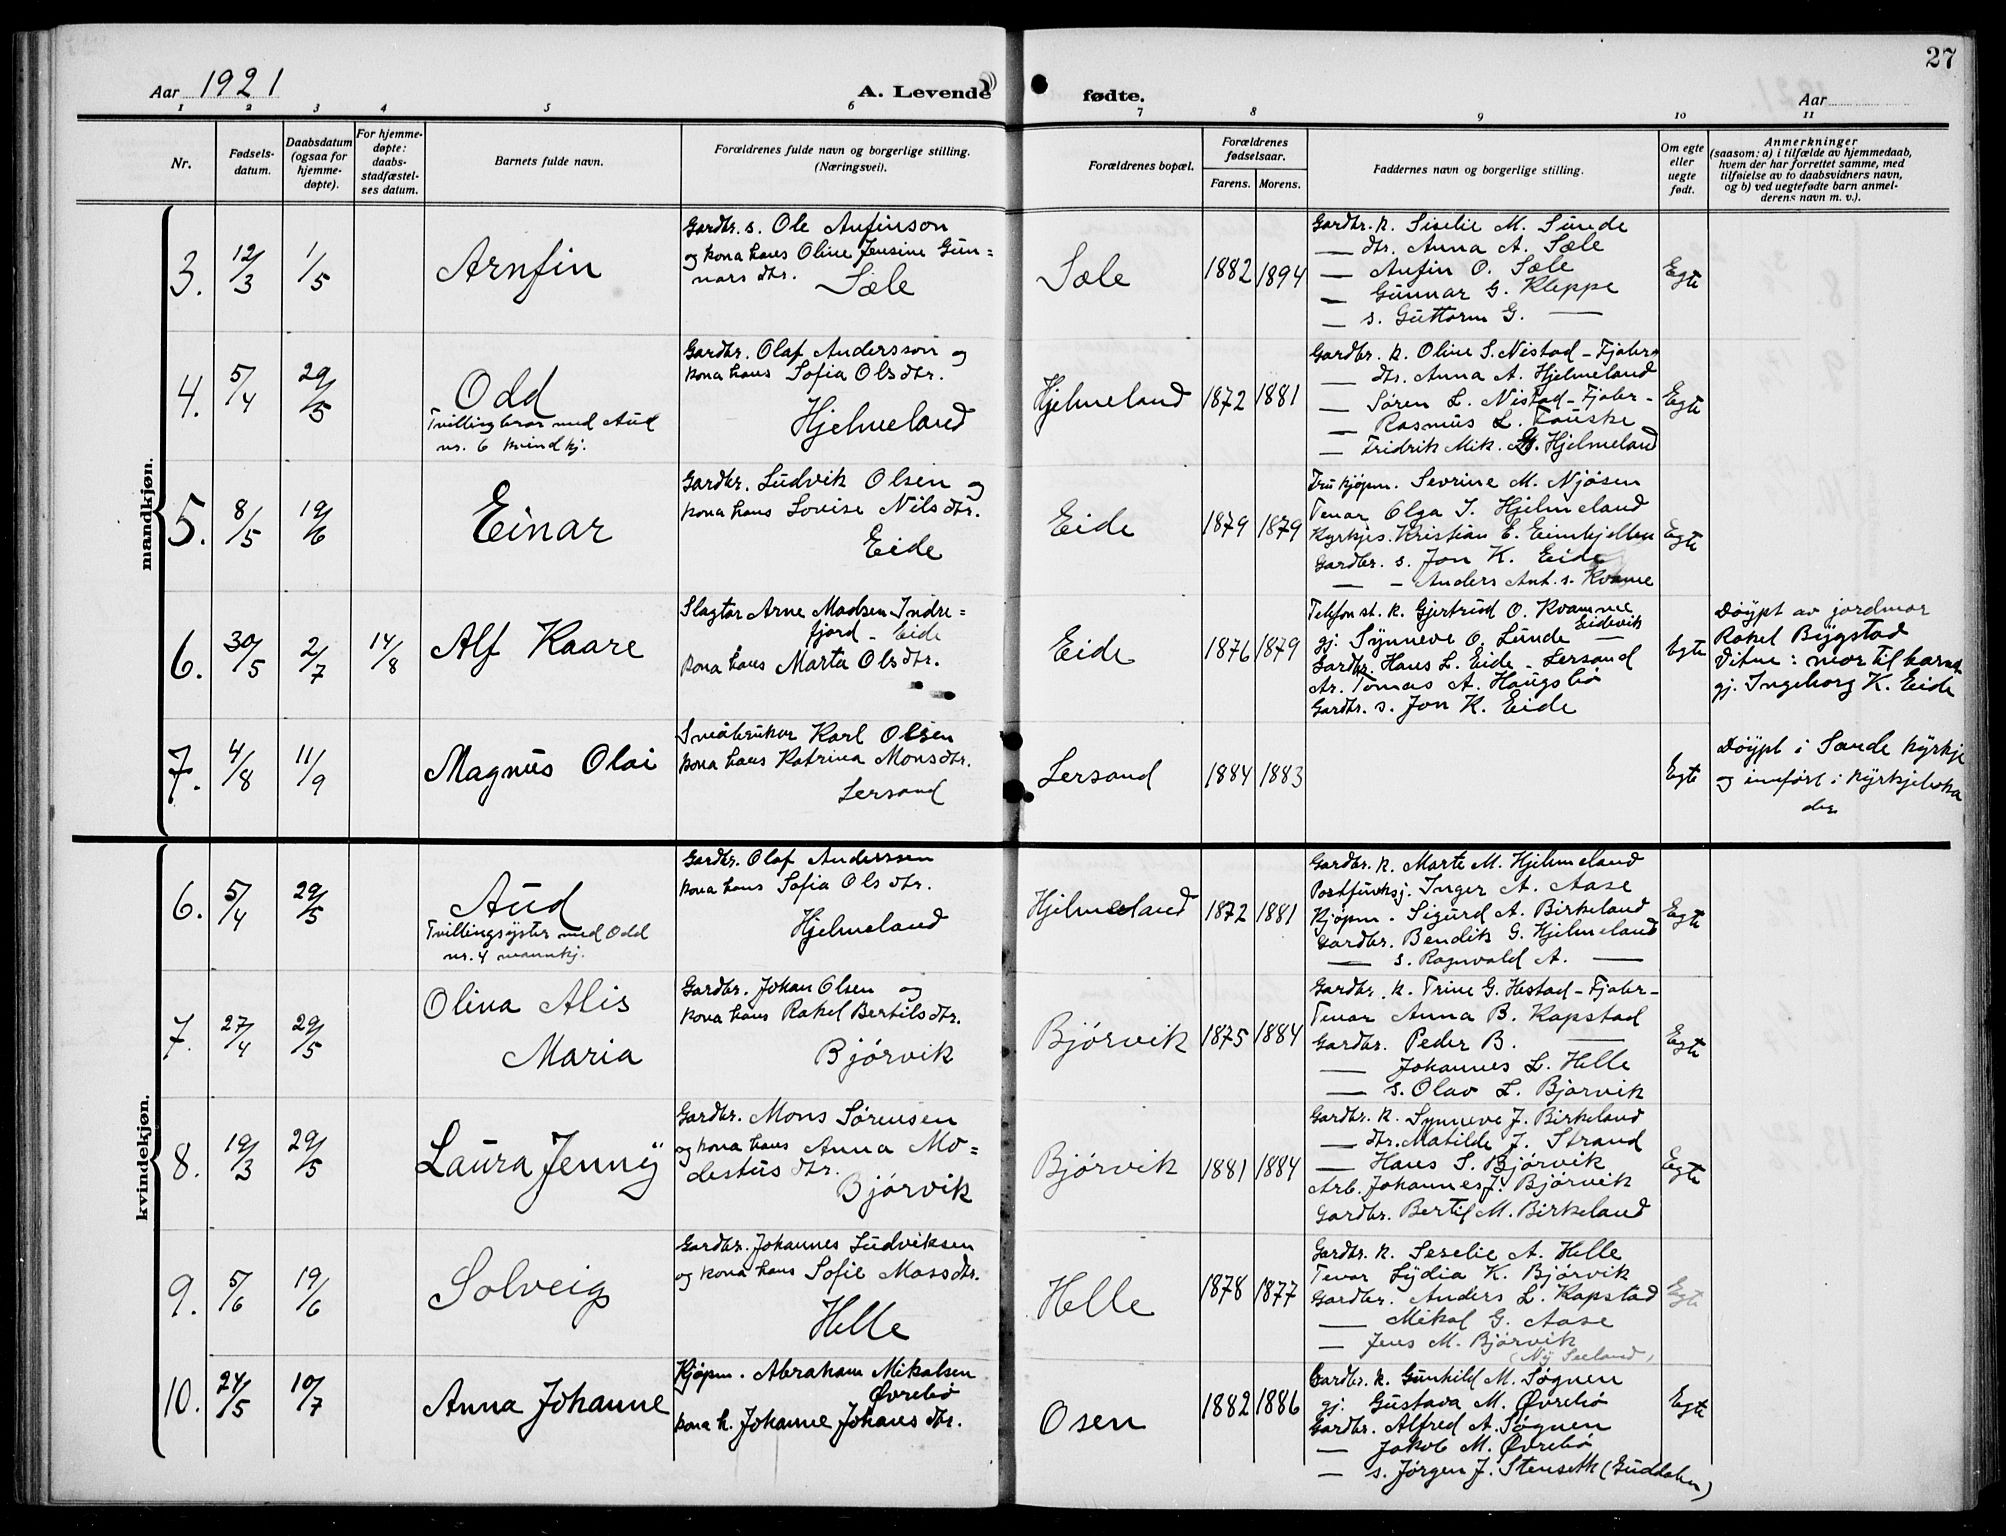 27
Aar 1921
A. Levende fødte.
Aar
1 2 3 4 5 6 7 8 9 10 11
Nr.
Fødsels-
datum.
Daabsdatum
(ogsaa for
hjemme-
døpte).
For hjemme-
døpte:
daabs-
stadfæstel-
ses datum.
Barnets fulde navn.
Forældrenes fulde navn og borgerlige stilling.
(Næringsvei).
Forældrenes bopæl.
Forældrenes
fødselsaar.
Farens. Morens.
Faddernes navn og borgerlige stilling.
Om egte
eller
uegte
født.
Anmerkninger
(saasom: a) i tilfælde av hjemmedaab,
hvem der har forrettet samme, med
tilføielse av to daabsvidners navn,
og b) ved uegtefødte barn anmel-
derens navn m. v.).
mandkjøn.
3. 12/3 1/5
Arnfin
Gardbr. s. Ole Anfinson
og kona hans Oline Jensine Gun=
nars dtr.
Sæle
Sæle
1882 1894
Gardbr. k. Siselie M. Sunde
— dtr. Anna A. Sæle
— Anfin O. Sæle
— Gunnar G. Kleppe
— s. Guttorm G. —
Egte
4. 5/4 29/5
Odd
Tvillingbror med Aud
nr. 6 kvindkj.
Gardbr. Olaf Andersson og
kona hans Sofia Olsdtr.
Hjelmeland
Hjelmeland
1872 1881
Gardbr. k. Oline S. Nistad - Fjaler
— dtr. Anna A. Hjelmeland
— Søren L. Nistad - Fjaler -
— Rasmus L. Fauske
— Fridrik Mik. G. Hjelmeland
Egte
5. 8/5 19/6
Einar
Gardbr. Ludvik Olsen og
kona hans Lovise Nilsdtr.
Eide
Eide
1879 1879
Fru kjøpm. Sevrine M. Njøsen
Tenar Olga I. Hjelmeland
Kyrkjes. Kristian E. Eimhjellen
Gardbr. s. Jon K. Eide
— - Anders Ant. s. Kvame
Egte
6. 30/5 2/7 14/8
Alf Kaare
Slagtar Arne Madsen Indre=
fjord - Eide
kona hans Marta Olsdtr.
Eide
1876 1879
Telefonst. k. Gjertrud O. Kvamme
Eidevik
gj. Synneve O. Lunde —
Gardbr. Hans L. Eide - Lersand
Ar. Tomas A. Haugsbø
Gardbr. s. Jon K. Eide
Egte
Døypt av jordmor
Rakel Bygstad
Vitne: mor til barnet
gj. Ingeborg K. Eide
7. 4/8 11/9
Magnus Olai
Småbrukar Karl Olsen
kona hans Katrina Monsdtr.
Lersand
Lersand
1884 1883
Egte
Døypt i Sande kyrkje
og innført i kyrkjeboka
der
kvindekjøn.
6. 5/4 29/5
Aud
Tvillingsyster med Odd
nr. 4 mannkj.
Gardbr. Olaf Anderssen
kona hans Sofia Olsdtr.
Hjelmeland
Hjelmeland
1872 1881
Gardbr. k. Marte M. Hjelmeland
Postfunksj. Inger A. Aase
Kjøpm. Sigurd A. Birkeland
Gardbr. Bendik G. Hjelmeland
— s. Ragnvald A. —
Egte
7. 27/4 29/5
Olina Alis
Maria
Gardbr. Johan Olsen og
kona hans Rakel Bertilsdtr.
Bjørvik
Bjørvik
1875 1884
Gardbr. k. Trine G. Hestad - Fjaler -
Tenar Anna B. Kapstad
Gardbr. Peder B. —
— Johannes L. Helle
— s. Olav L. Bjørvik
Egte
8. 19/3 29/5
Laura Jenny
Gardbr. Mons Sørensen
og kona hans Anna Mo=
destus dtr.
Bjørvik
Bjørvik
1881 1884
Gardbr. k. Synneve J. Birkeland
— dtr. Matilde J. Strand
— Hans S. Bjørvik
Arb. Johannes J. Bjørvik
Gardbr. Bertil M. Birkeland
Egte
9. 5/6 19/6
Solveig
Gardbr. Johannes Ludviksen
og kona hans Sofie Mossdtr.
Helle
Helle
1878 1877
Gardbr. k. Seselie A. Helle
Tenar Lydia K. Bjørvik
Gardbr. Anders L. Kapstad
— Mikal G. Aase
— Jens M. Bjørvik
(Ny Seeland)
Egte
10. 24/5 10/7
Anna Johanne
Kjøpm. Abraham Mikalsen
Øvrebø
kona h. Johanne Johans dtr.
Osen
1882 1886
Gardbr. k. Gunhild M. Søgnen
gj. Gustava M. Øvrebø
Gardbr. Alfred A. Søgnen
— Jakob M. Øvrebø
— s. Jørgen J. Stenseth (Guddalen)
Egte